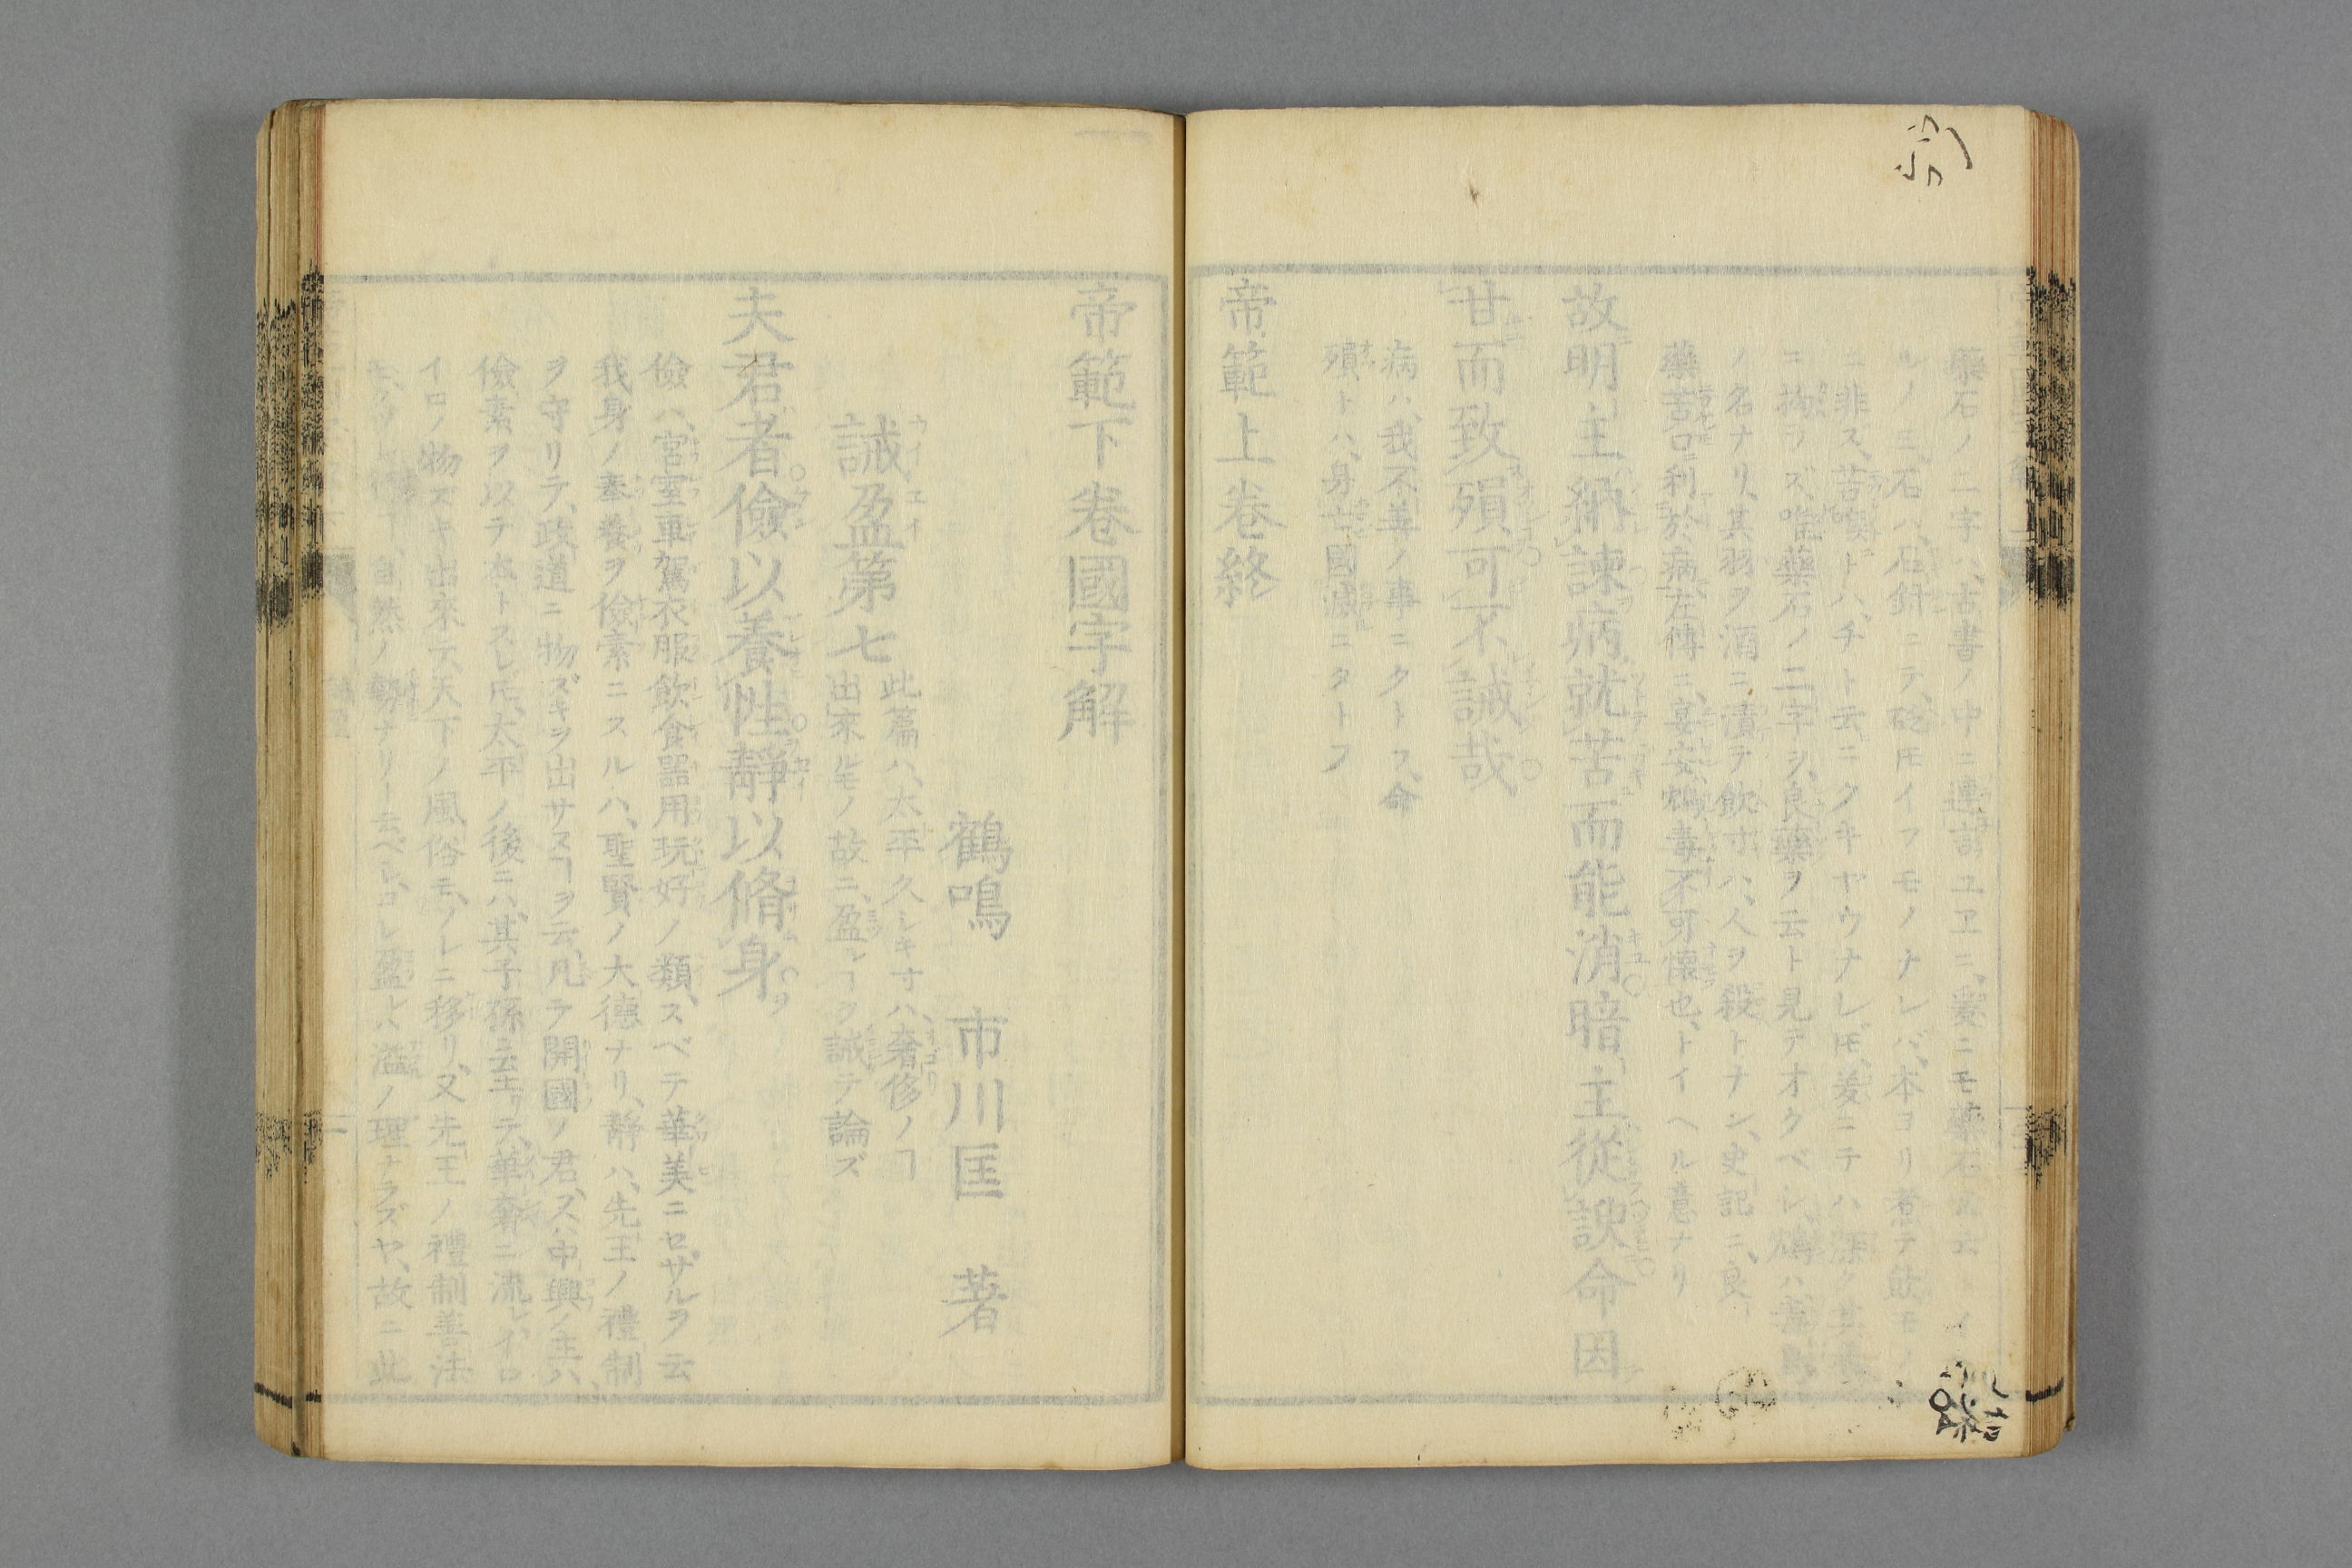 藥石ノ二字ハ、古書ノ中ニ連言ユヱニ、爰ニモ藥石ト云
ルノミ、石ハ、石針ニテ、砭𪜈イフモノナレバ、本ヨリ煮テ飲モノ
ニ非ズ、苦喫トハ、チト云ニクキヤウナレ𪜈、爰ニテハ深ク其
ニ拘ラズ、唯藥石ノ二字ヲ、良藥ヲ云ト見テオクベシ、鴆ハ、毒鳥
ノ名ナリ、其羽ヲ酒ニ漬テ飲ホハ、人ヲ殺トナン、史記ニ、良
藥苦口利於病、左傳ニ、宴安鴆毒不可懷也、トイヘル意ナリ
故明主納諫病就苦而能消暗主從諛命因
甘而致殞可不誡哉
病ハ、我不善ノ事ニタトフ、命
殞トハ、身亡、國滅ニタトフ
帝範上卷終
帝範下卷國字解
鶴鳴 市川匡 著
誡盈第七
此篇ハ、太平久シキ寸ハ、奢侈ノヿ
出來ルモノ故ニ、盈ルヿヲ誡テ論ズ
夫君者儉以養性靜以脩身
儉ハ、宮室車駕衣服飲食器用玩好ノ類、スベテ華美ニセザルヲ云
我身ノ奉養ヲ儉素ニスルハ、聖賢ノ大德ナリ、靜ハ、先王ノ禮制
ヲ守リテ、政道ニ物ズキヲ出サヌヿヲ云、凡テ開國ノ君、又ハ中興ノ主ハ、
儉素ヲ以テ本トスレ𪜈、太平ノ後ニハ、其子孫ニ至リテ、華奢ニ流レ、イロ
イロノ物ズキ出來テ、天下ノ風俗モ、ソレニ移リ、又先王ノ禮制善法
自然ノ勢ナリト云ベシ、コレ盈レハ溢ノ理ナラズヤ、故ニ此